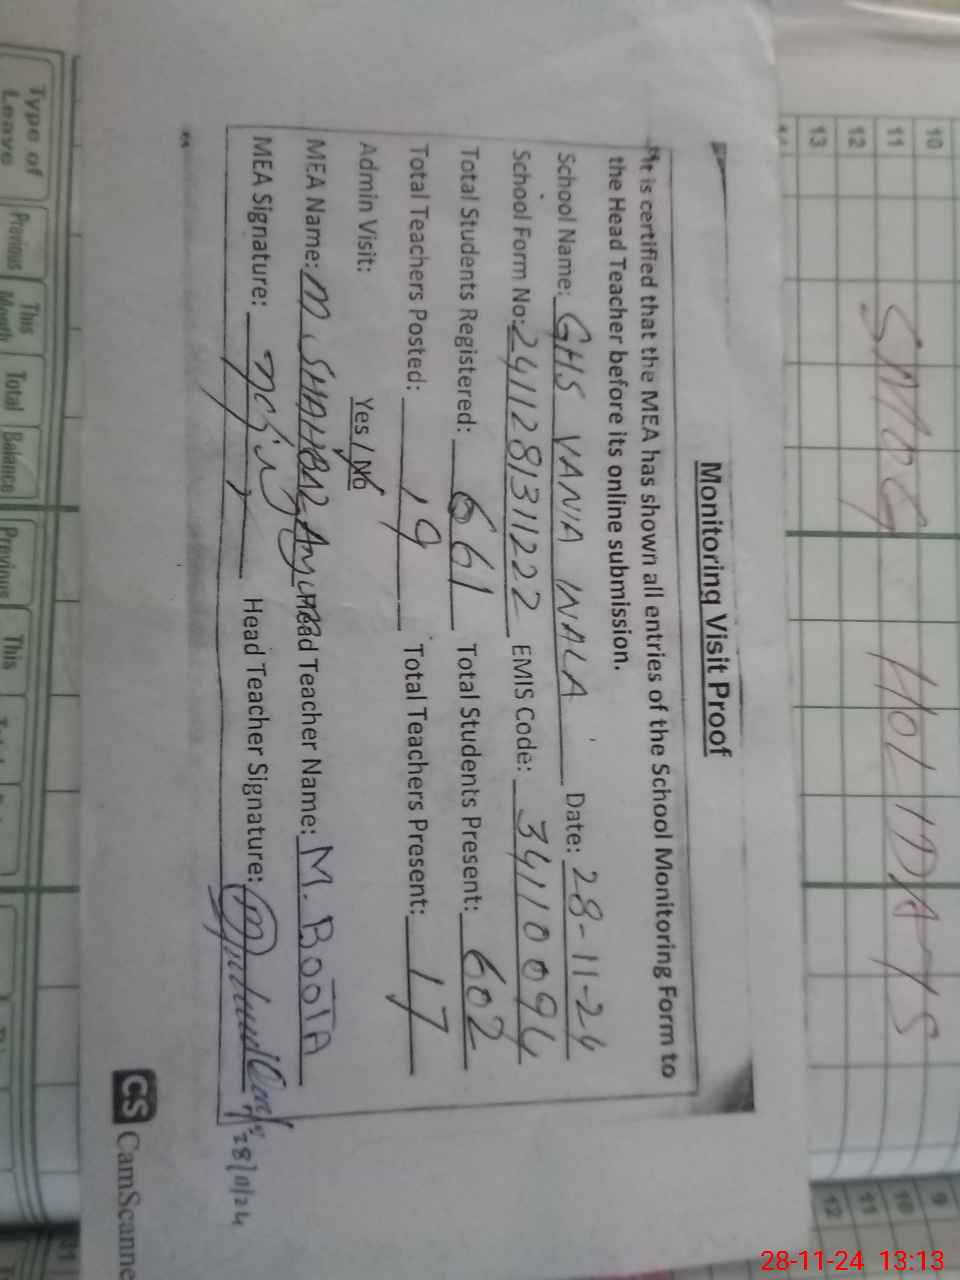 10
11
12
13
SMOG HOLIDAYS
Monitoring Visit Proof
"It is certified that the MEA has shown all entries of the School Monitoring Form to
the Head Teacher before its online submission.
School Name: GHS VANIA WALA Date: 28-11-24
School Form No: 2411281311222 EMIS Code: 34110094
Total Students Registered: 661 Total Students Present: 602
Total Teachers Posted: 19 Total Teachers Present: 17
Admin Visit: Yes / No
MEA Name: M SHAHBAZ Head Teacher Name: M. BOOTA
MEA Signature: Head Teacher Signature:
28/11/24
CS CamScanne
Type of Leave
Previous
This Month
Total
Balance
Previous
This
9
10
11
12
31
28-11-24 13:13